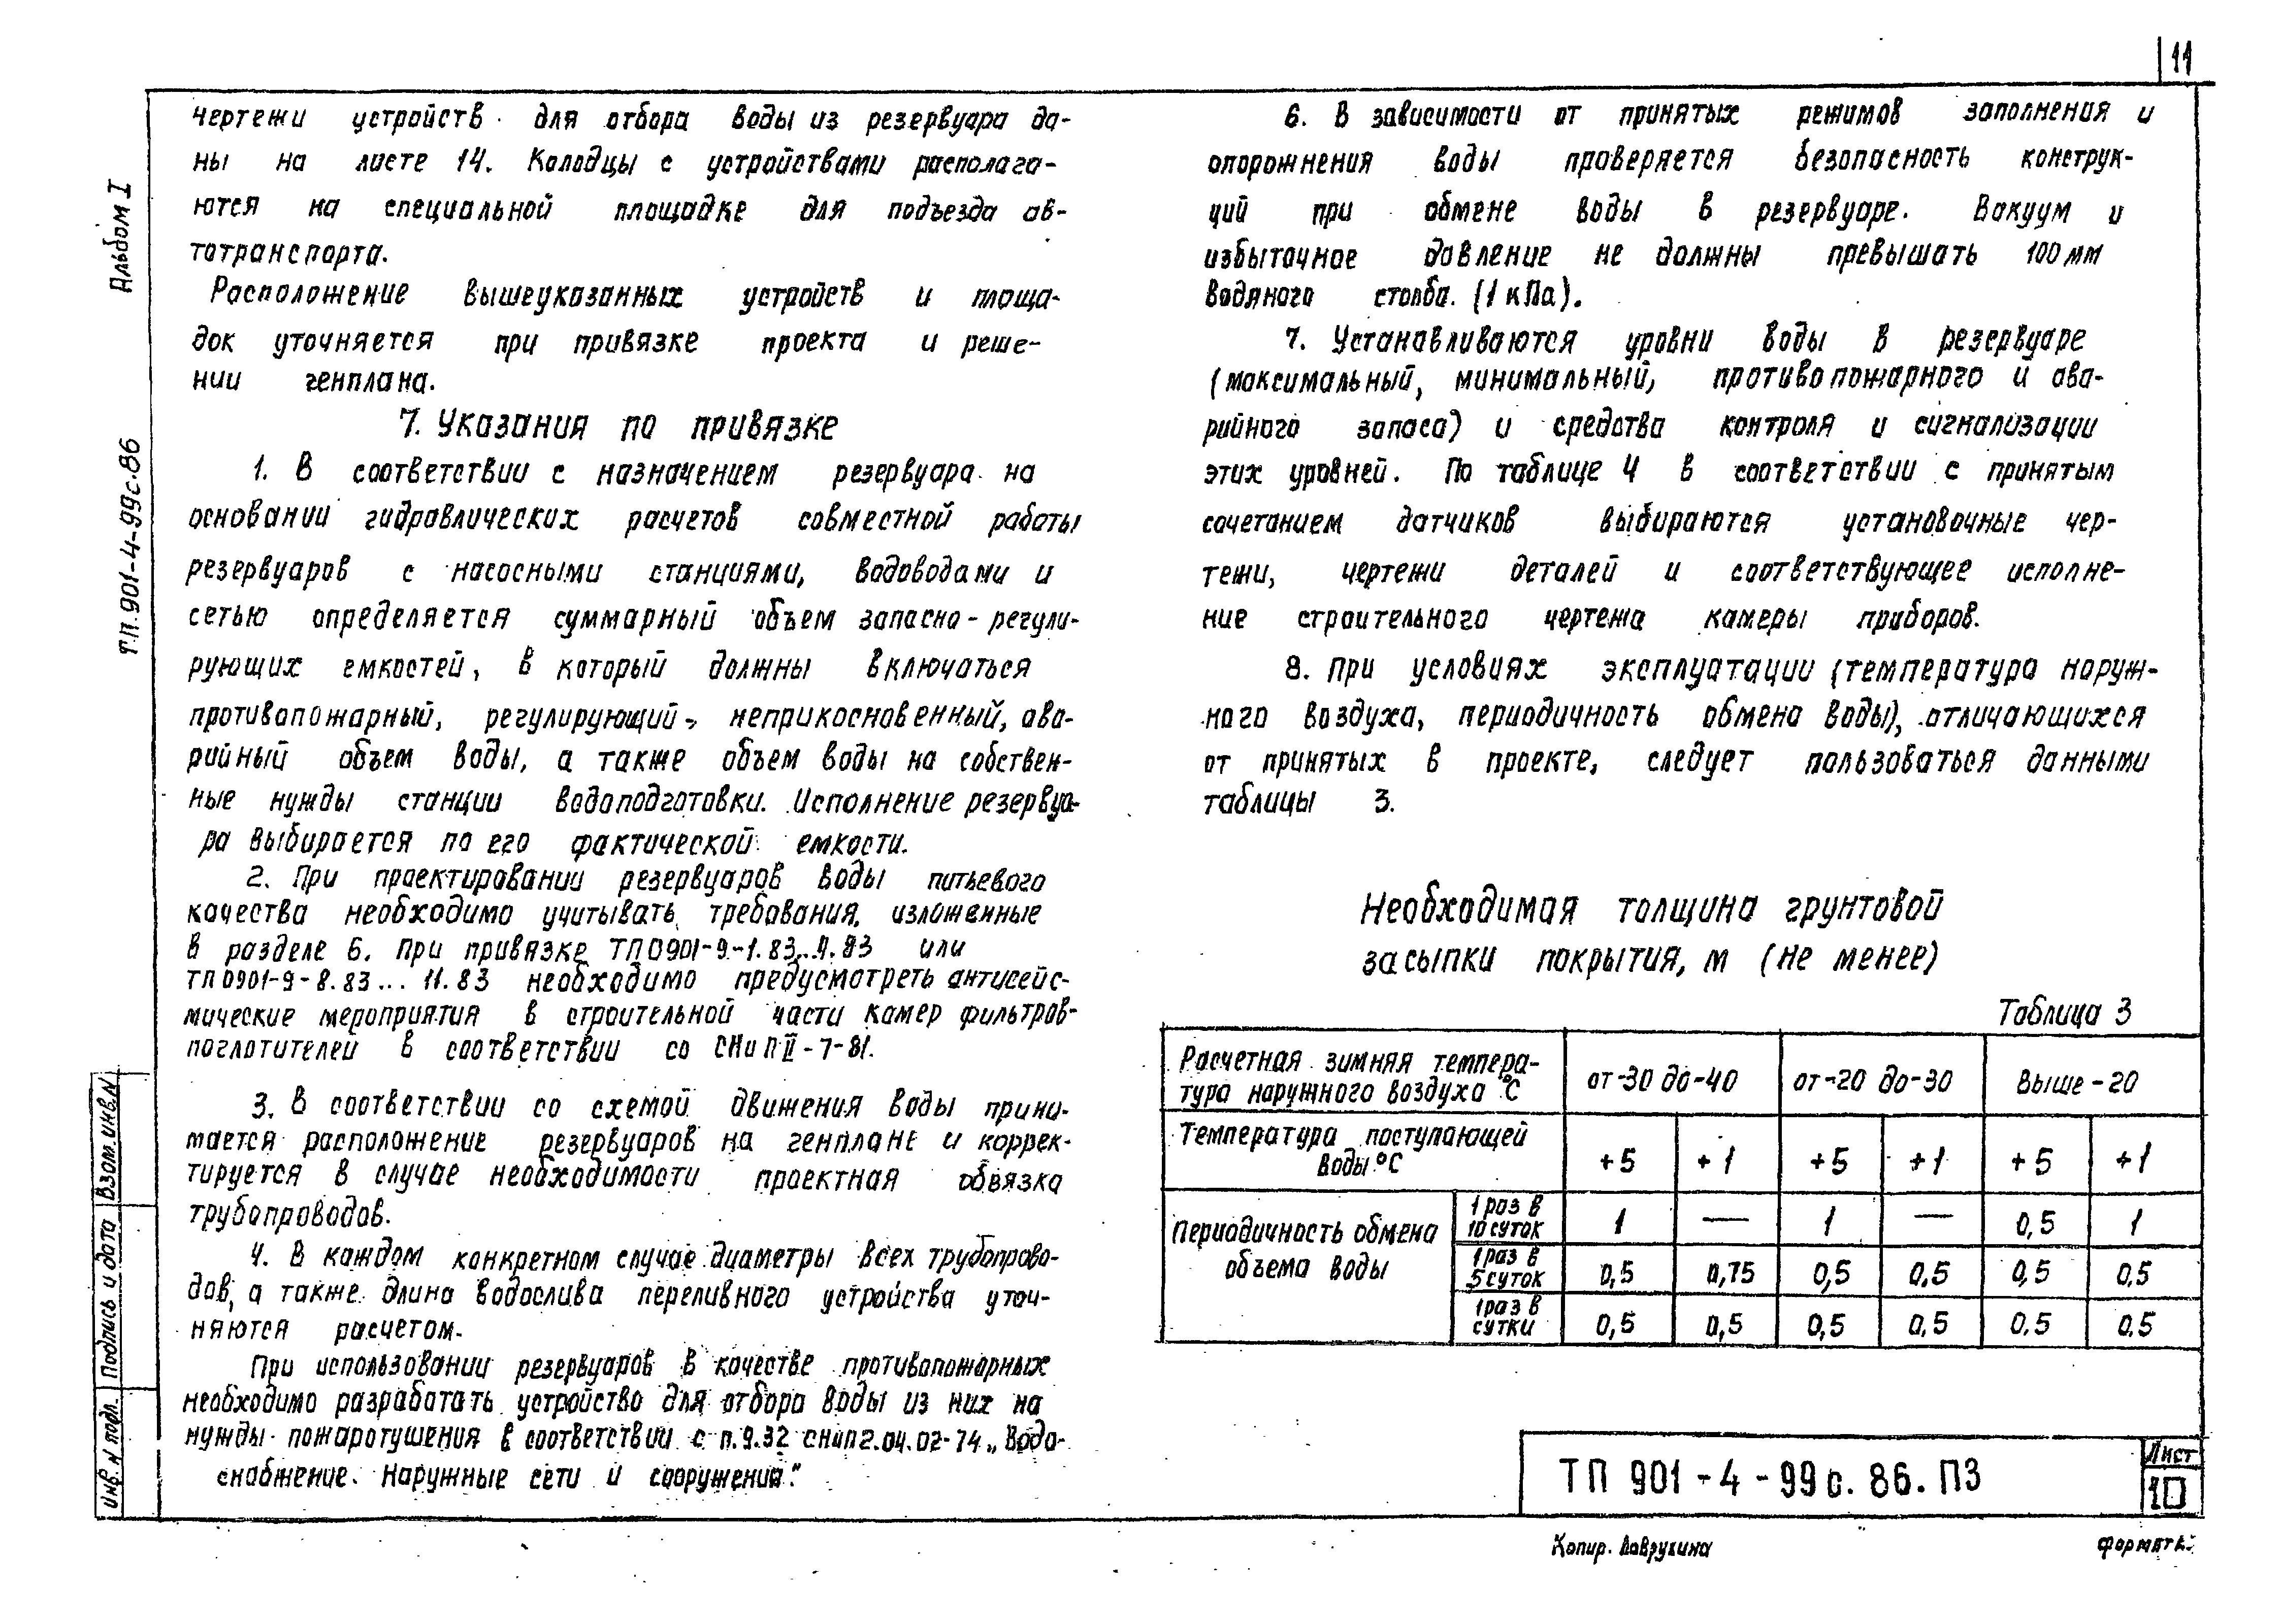 11
Альбом I
Т.П. 901-4-99с.86
чертежи устройств для отбора воды из резервуара да-
ны на листе 14. Колодцы с устройствами располага-
ются на специальной площадке для подъезда ав-
тотранспорта.
Расположение вышеуказанных устройств и площа-
док уточняется при привязке проекта и реше-
нии генплана.
7. Указания по привязке
1. В соответствии с назначением резервуара на
основании гидравлических расчетов совместной работы
резервуаров с насосными станциями, водоводами и
сетью определяется суммарный объем запасно-регули-
рующих емкостей, в который должны включаться
противопожарный, регулирующий, неприкосновенный, ава-
рийный объем воды, а также объем воды на собствен-
ные нужды станции водоподготовки. Исполнение резервуа-
ра выбирается по его фактической емкости.
2. При проектировании резервуаров воды питьевого
качества необходимо учитывать требования, изложенные
в разделе 6. При привязке ТП 0901-9-1.83...4.83 или
ТП 0901-9-8.83... 11.83 необходимо предусмотреть антисейс-
мические мероприятия в строительной части камер фильтров-
поглотителей в соответствии со СНиП II-7-81.
3. В соответствии со схемой движения воды прини-
мается расположение резервуаров на генплане и коррек-
тируется в случае необходимости проектная обвязка
трубопроводов.
4. В каждом конкретном случае диаметры всех трубопрово-
дов, а также длина водослива переливного устройства уточ-
няются расчетом.
При использовании резервуаров в качестве противопожарных
необходимо разработать устройство для отбора воды из них на
нужды пожаротушения в соответствии с п.9.32 СНиП 2.04.02-74 „Водо-
снабжение. Наружные сети и сооружения."
6. В зависимости от принятых режимов заполнения и
опорожнения воды проверяется безопасность конструк-
ций при обмене воды в резервуаре. Вакуум и
избыточное давление не должны превышать 100 мм
водяного столба. (1 кПа).
7. Устанавливаются уровни воды в резервуаре
(максимальный, минимальный, противопожарного и ава-
рийного запаса) и средства контроля и сигнализации
этих уровней. По таблице 4 в соответствии с принятым
сочетанием датчиков выбираются установочные чер-
тежи, чертежи деталей и соответствующее исполне-
ние строительного чертежа камеры приборов.
8. При условиях эксплуатации (температура наруж-
ного воздуха, периодичность обмена воды), отличающихся
от принятых в проекте, следует пользоваться данными
таблицы 3.
Необходимая толщина грунтовой
засыпки покрытия, м (не менее)
Таблица 3
Расчетная зимняя темпера-
тура наружного воздуха °С
от -30 до -40
от -20 до -30
Выше -20
Температура поступающей
воды °С
+5 +1 +5 +1 +5 +1
Периодичность обмена
объема воды
1 раз в
10 суток
1 — 1 — 0,5 1
1 раз в
5 суток
0,5 0,75 0,5 0,5 0,5 0,5
1 раз в
сутки
0,5 0,5 0,5 0,5 0,5 0,5
Взам. инв. N
Подпись и дата
Инв. N подл.
ТП 901-4-99с.86.ПЗ
Лист
10
Копир. Лаврухина
Формат